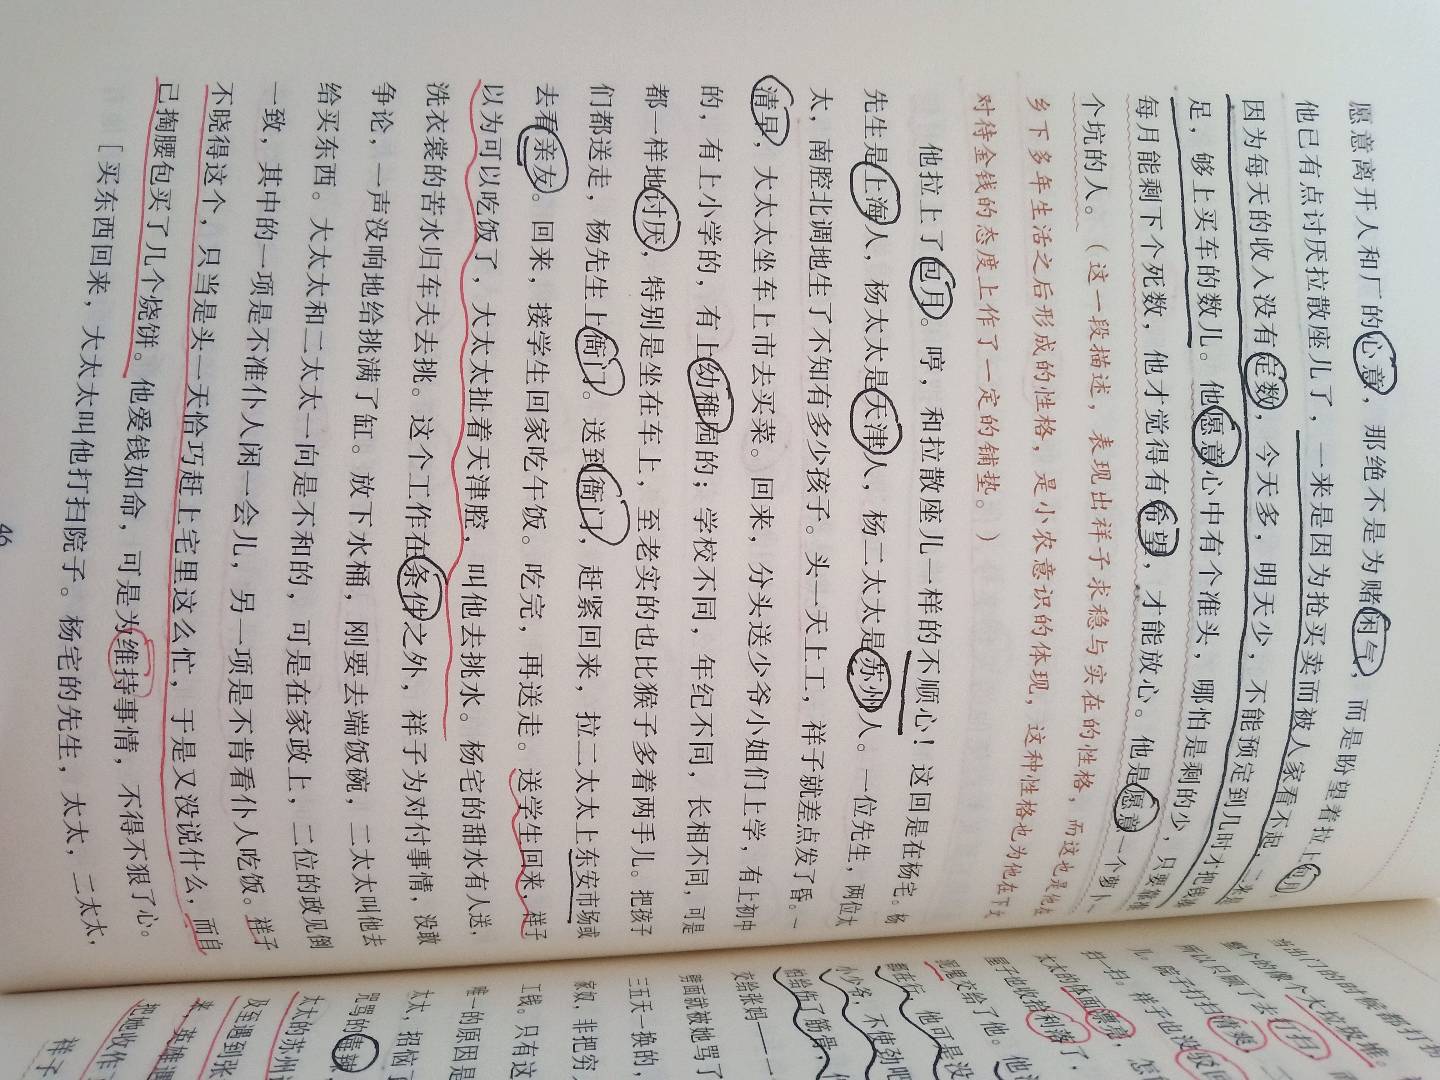 愿意离开人和厂的心意，那绝不是为赌闲气，而是盼望着拉上包月。
他已有点讨厌拉散座儿了，一来是因为抢买卖而被人家看不起，二来是
因为每天的收入没有定数，今天多，明天少，不能预定到几时才把钱凑
足，够上买车的数儿。他愿意心中有个准头，哪怕是剩的少，只要靠准
每月能剩下个死数，他才觉得有希望，才能放心。他是愿意一个萝卜一
个坑的人。（这一段描述，表现出祥子求稳与实在的性格，而这也是他在
乡下多年生活之后形成的性格，是小农意识的体现，这种性格也为他在下文
对待金钱的态度上作了一定的铺垫。）
他拉上了包月。哼，和拉散座儿一样的不顺心！这回是在杨宅。杨
先生是上海人，杨太太是天津人，杨二太太是苏州人。一位先生，两位太
太，南腔北调地生了不知有多少孩子。头一天上工，祥子就差点发了昏。一
清早，大太太坐车上市去买菜。回来，分头送少爷小姐们上学，有上初中
的，有上小学的，有上幼稚园的；学校不同，年纪不同，长相不同，可是
都一样地讨厌，特别是坐在车上，至老实的也比猴子多着两手儿。把孩子
们都送走，杨先生上衙门。送到衙门，赶紧回来，拉二太太上东安市场或
去看亲友。回来，接学生回家吃午饭。吃完，再送走。送学生回来，祥子
以为可以吃饭了，大太太扯着天津腔，叫他去挑水。杨宅的甜水有人送，
洗衣裳的苦水归车夫去挑。这个工作在条件之外，祥子为对付事情，没敢
争论，一声没响地给挑满了缸。放下水桶，刚要去端饭碗，二太太叫他去
给买东西。大太太和二太太一向是不和的，可是在家政上，二位的政见倒
一致，其中的一项是不准仆人闲一会儿，另一项是不肯看仆人吃饭。祥子
不晓得这个，只当是头一天恰巧赶上宅里这么忙，于是又没说什么，而自
己掏腰包买了几个烧饼。他爱钱如命，可是为维持事情，不得不狠了心。
[ 买东西回来，大太太叫他打扫院子。杨宅的先生，太太，二太太，
46
当出门的时候都打扮
整个的像个大垃圾堆。
所以只顾了去打扫，而
儿，院子打扫清爽，二
扫一扫。祥子也没驳回
太太的体面漂亮，怎
屋子他收拾利落了，
泥鬼交给了他。他
都在行，他可是没
小少爷，不使劲吧
怕给伤了筋骨，他
交给张妈——一
劈面就被她骂了
三五天一换的，
家奴，非把穷人
工钱。只有这
唯一的原因是
太太，招恼了
咒骂的
太太的苏州话
及至遇到张
来，英雄遇
把她收作了
祥子